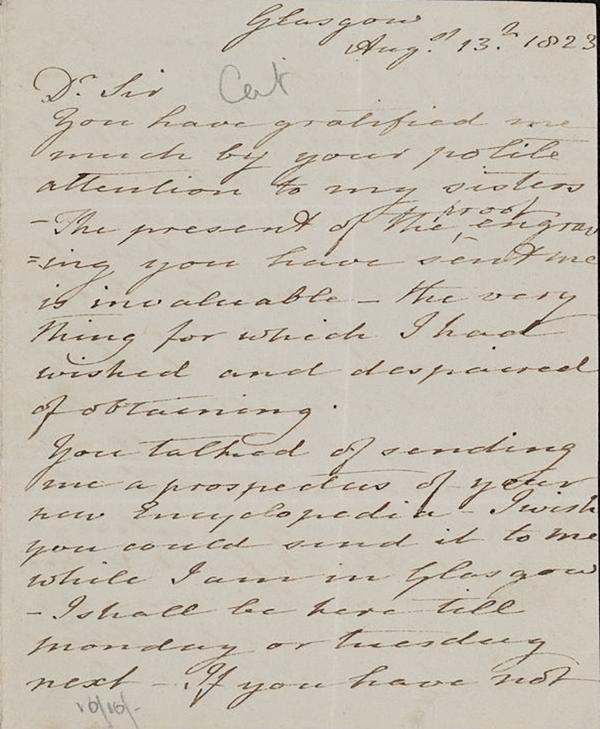 Glasgow
Augst 13th 1823
Dr Sir
Cert
You have gratified me
much by your polite
attention to my sisters
- The present of the proof engrav
=ing you have sent me
is invaluable - the very
thing for which I had
wished and despaired
of obtaining.
You talked of sending
me a prospectus of your
new Encyclopedia - I wish
you could send it to me
while I am in Glasgow
- I shall be here till
monday or tuesday
next - If you have not